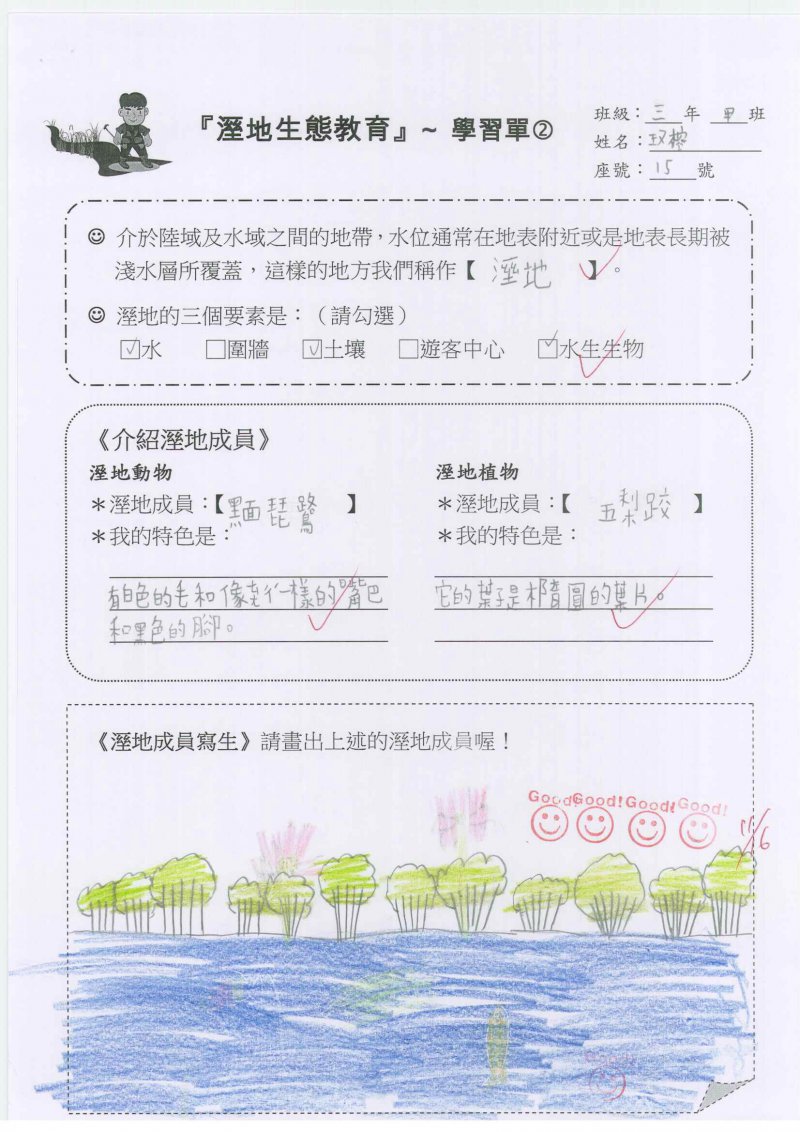 『溼地生態教育』~ 學習單②
班級：三年 甲班
姓名：
座號：15號
介於陸域及水域之間的地帶，水位通常在地表附近或是地表長期被
淺水層所覆蓋，這樣的地方我們稱作【 溼地 】。
溼地的三個要素是：（請勾選）
☑水 □圍牆 ☑土壤 □遊客中心 ☑水生生物
《介紹溼地成員》
溼地動物
＊溼地成員：【黑面琵鷺】
＊我的特色是：
有白色的毛和像 一樣的嘴巴
和黑色的腳。
溼地植物
＊溼地成員：【五梨跤】
＊我的特色是：
它的葉子是橢圓的葉片。
《溼地成員寫生》請畫出上述的溼地成員喔！
Good! Good! Good! Good!
11/6
Good!